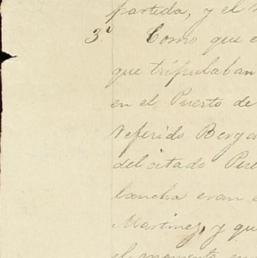 partida, y el
3ª Como que e
que tripulaban
en el Puerto de
referido Berga
del citado Pue
lancha eran
Martinez, y qu
el